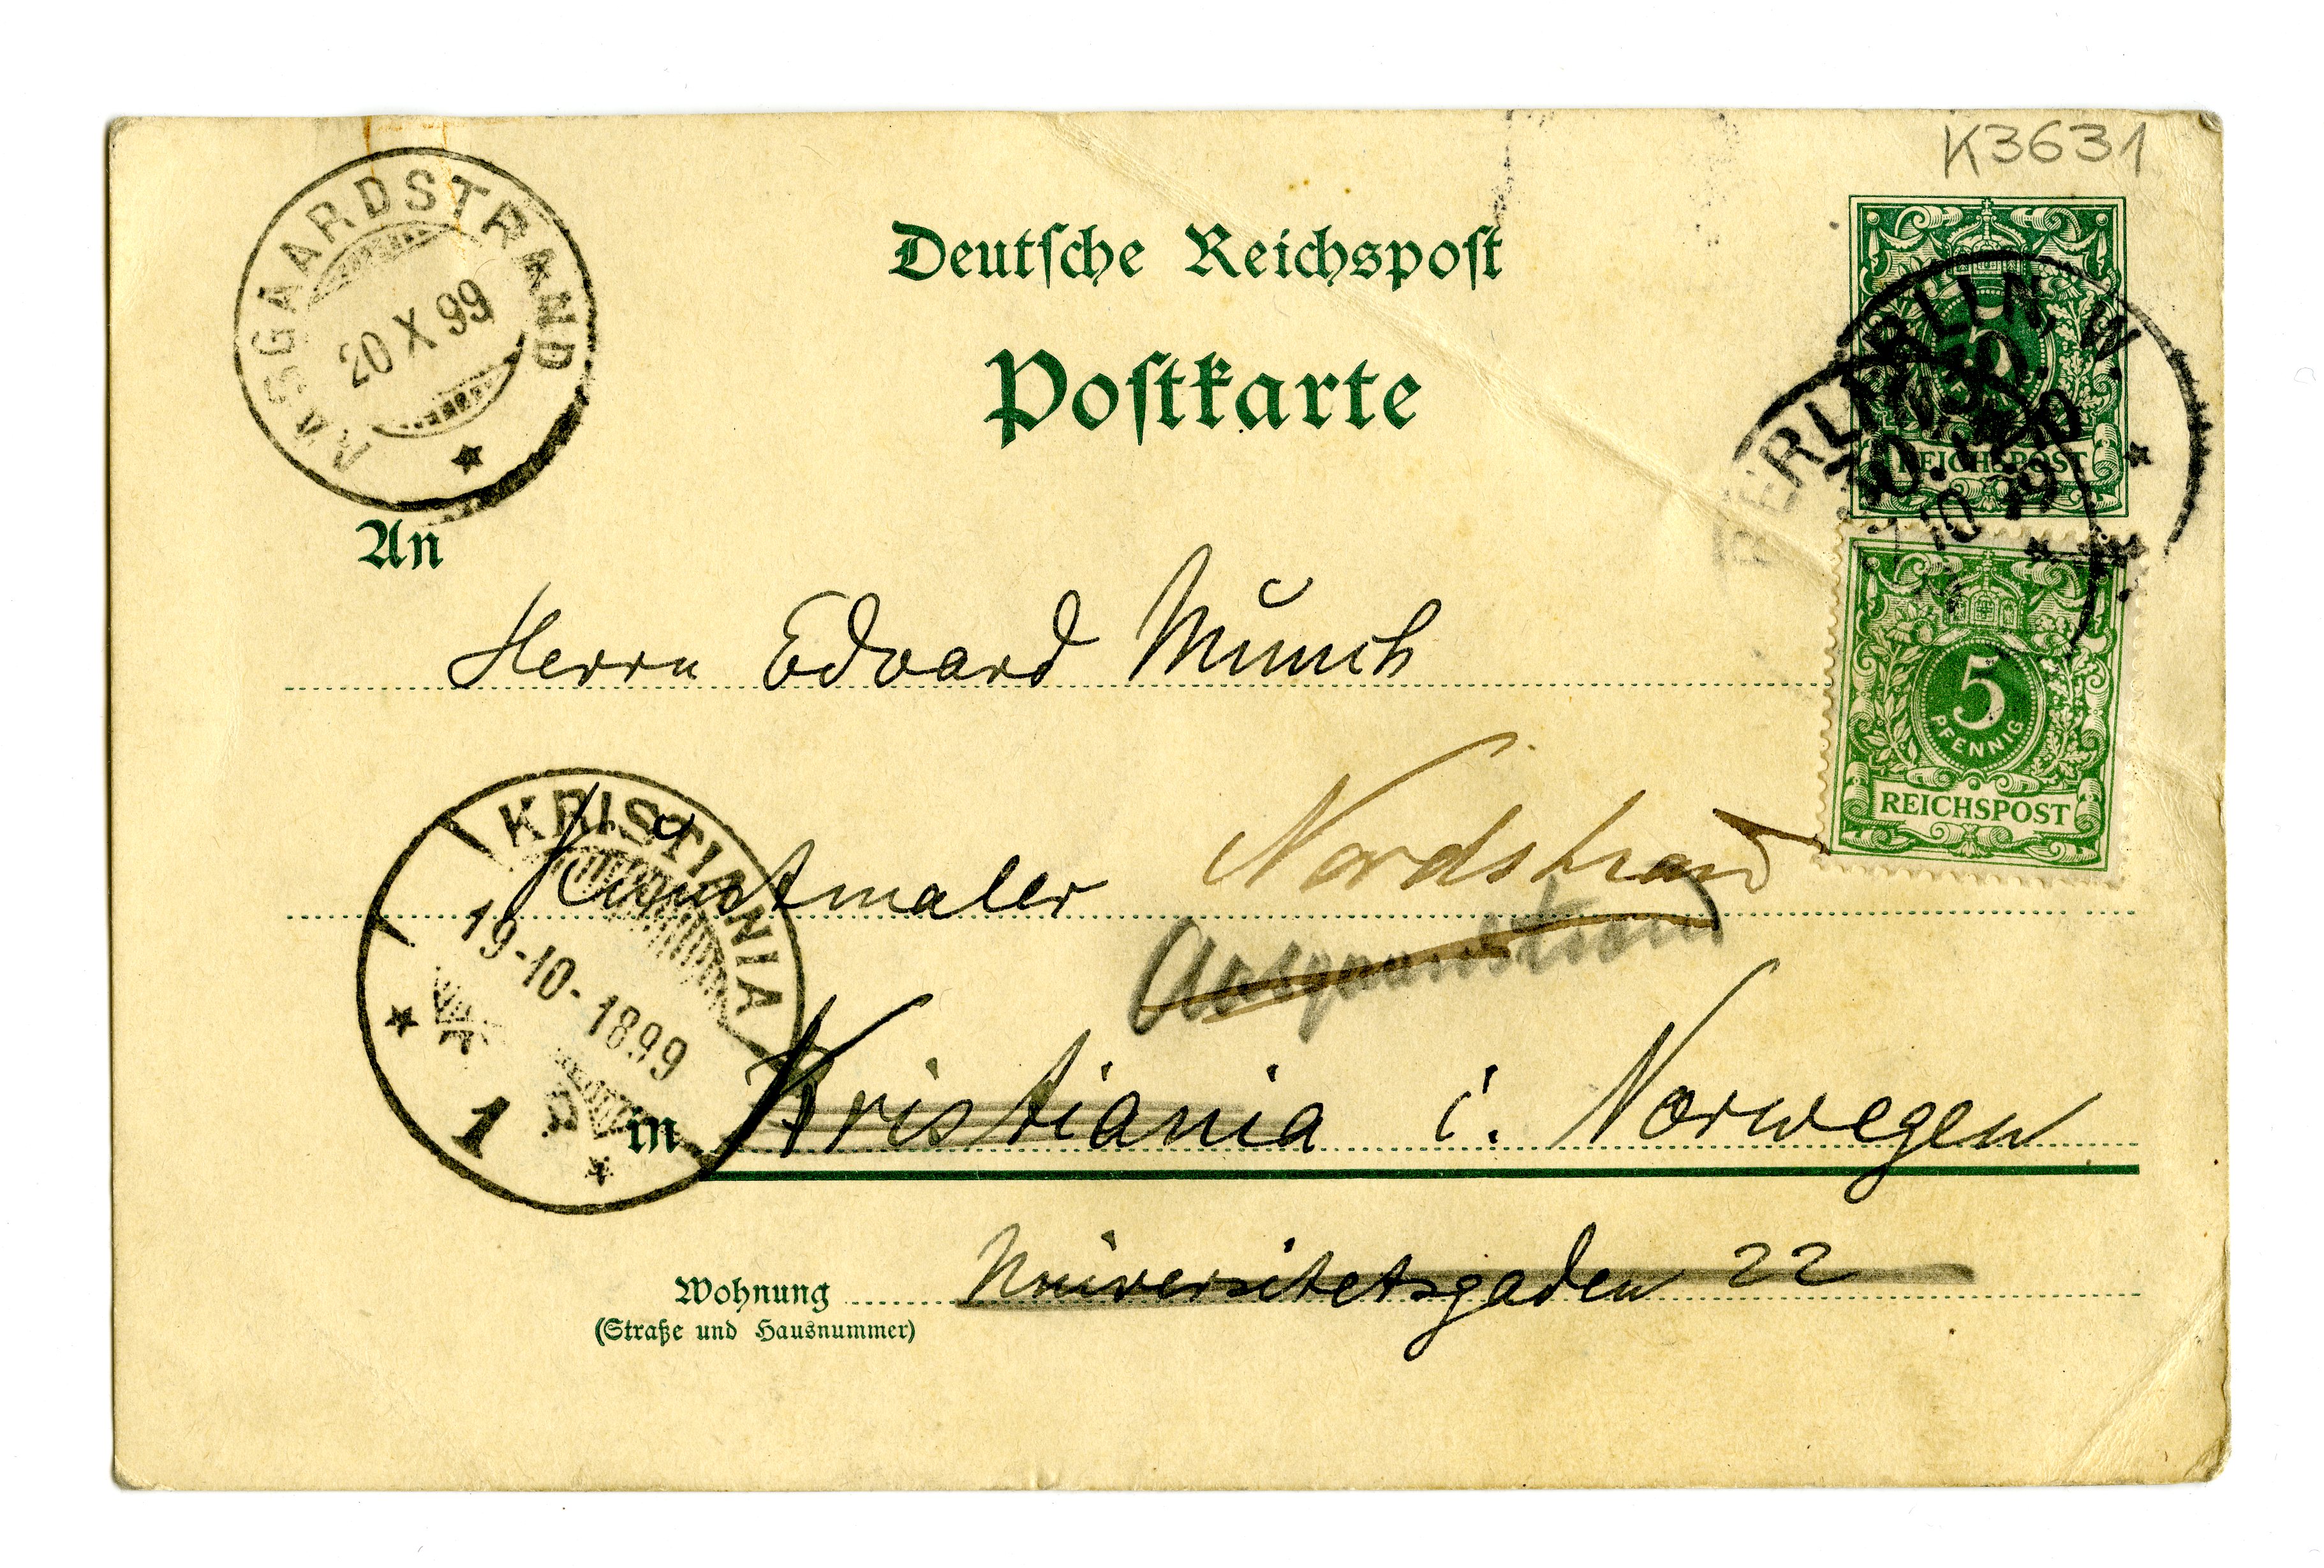 K3631
AASGAARDSTRAND
20 X 99
Deutsche Reichspost
Postkarte
BERLIN, W.
BERLIN
10 99
REICHSPOST
5
PFENNIG
REICHSPOST
An
Herrn Edvard Munch
Kunstmaler Nordstrand
Aasgaardstrand
KRISTIANIA
19-10-1899
1
in Kristiania i. Norwegen
Wohnung Universitetsgaden 22
(Straße und Hausnummer)